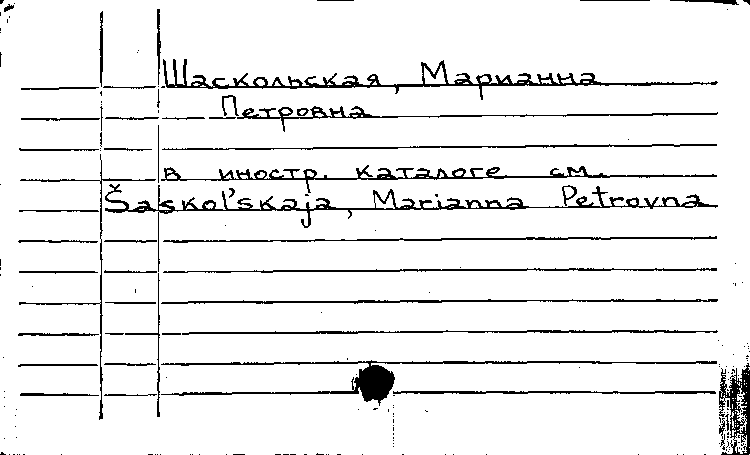 Шаскольская, Марианна
Петровна
в иностр. каталоге см.
Šaskol'skaja, Marianna Petrovna